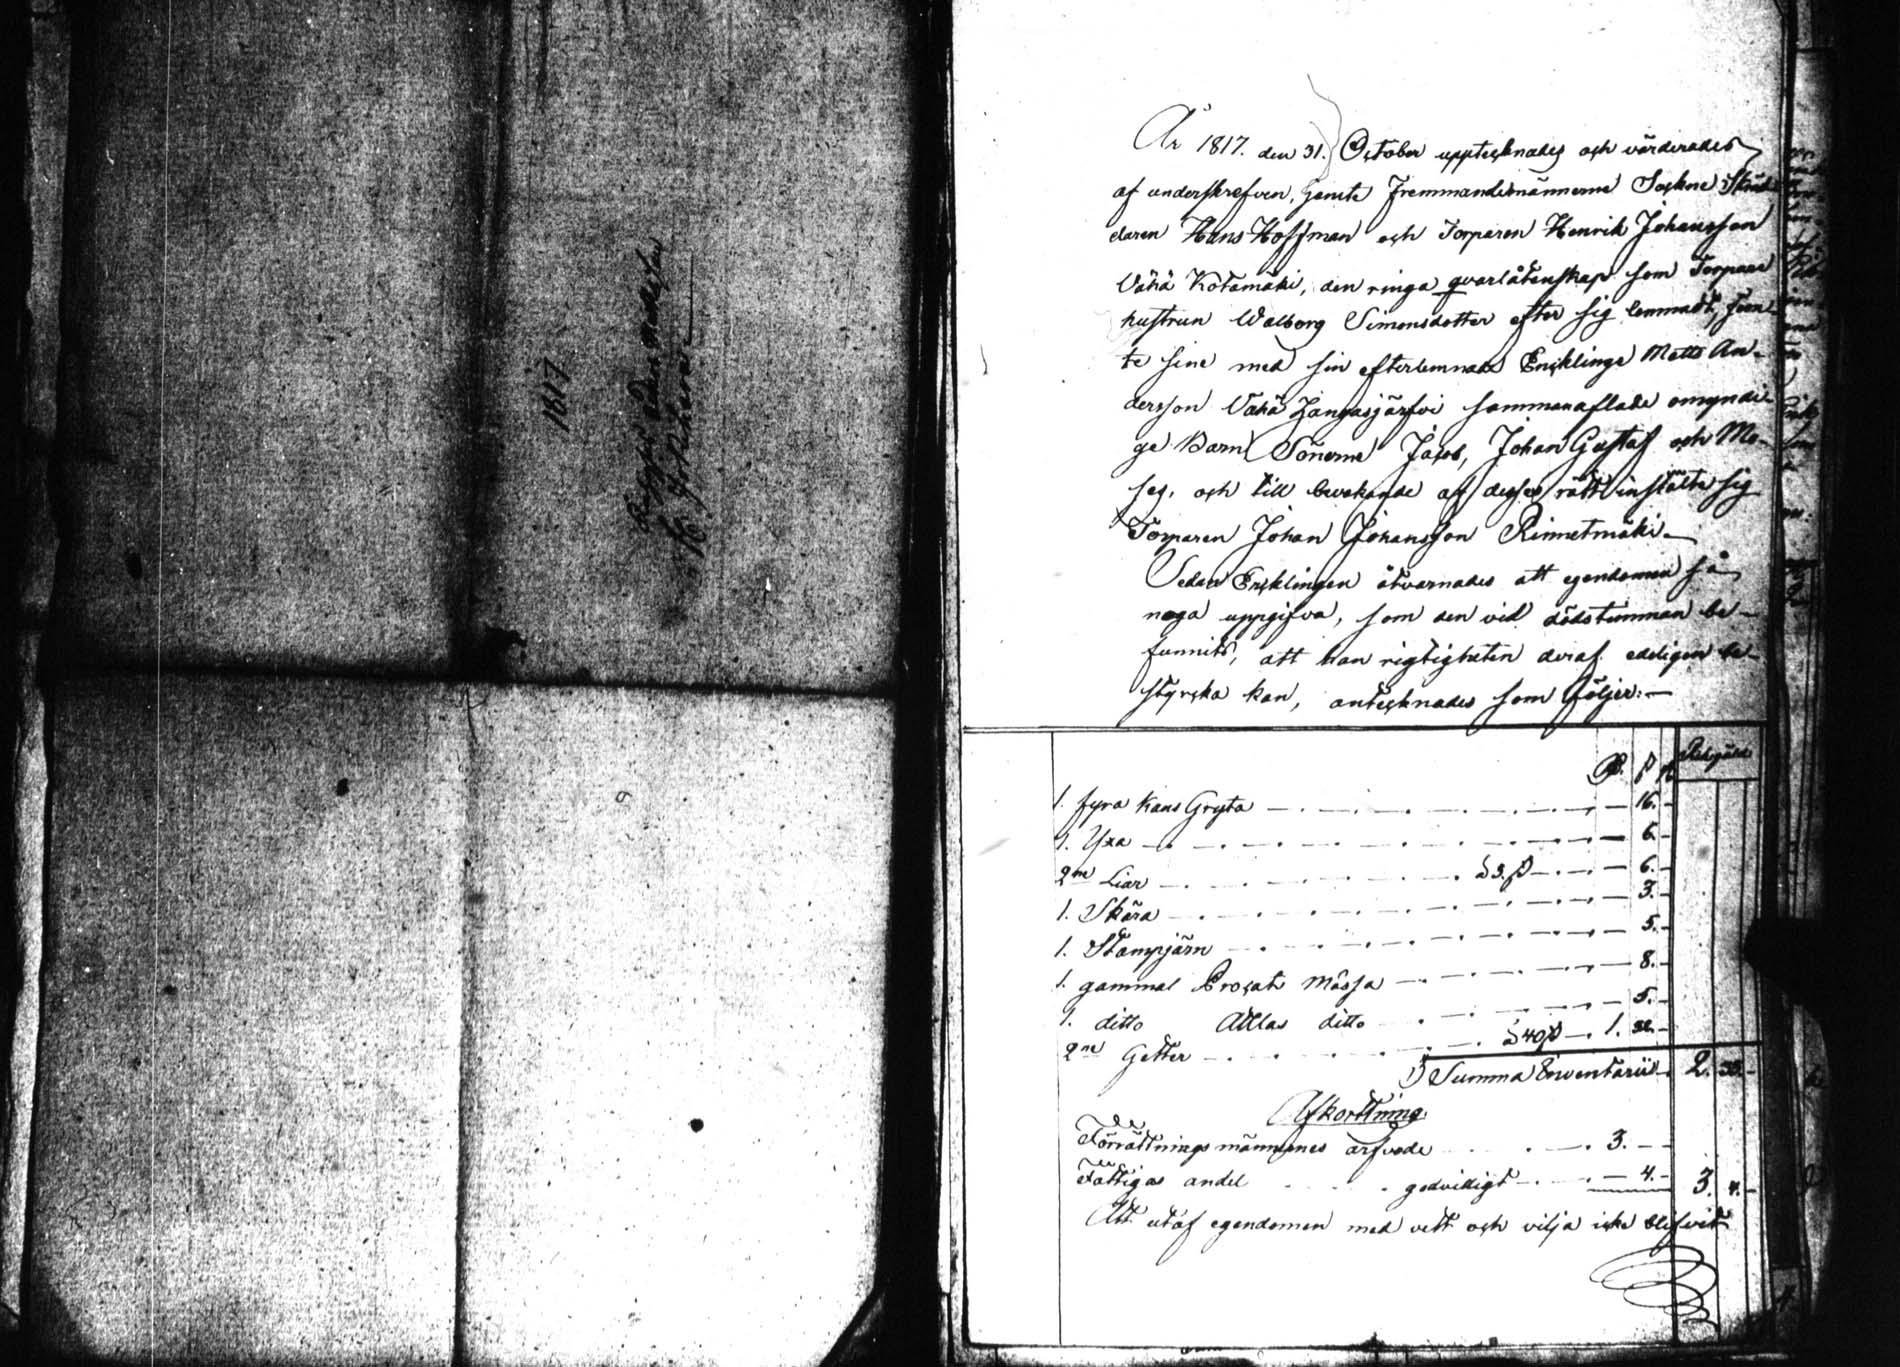 1817
År 1817. den 31. October uppteknades och värderades
af underskrefven, jemte Fremmandemännerne Sockne Skräd-
daren Hans Hoffman och Torparen Henrik Johansson
Vähä Kotamäki, den ringa qvarlåtenskap som Torpare
hustrun Walborg Simonsdotter efter sig lemnadt, jem-
te sine med sin efterlemnade Encklinge Matts An-
dersson Vähä sammanaflade omyndi-
ge Barn Sönerne Jacob, Johan Gustaf och Mo-
ses, och till bevakande af desses rätt instälte sig
Torparen Johan Johansson Rinnetmäki.
Sedan Encklingen åtvarnades att egendomen så
noga uppgifva, som den vid dödstimman be-
funnits, att han rigtigheten deraf edeligen be-
styrcka kan, antecknades som följer:
1. fyra kans Gryta 16.
1. Yxa 6.
2ne Liar à 3. β 6.
1. Skära 3.
1. Stampjärn 5.
1. gammal Brocat Mössa 8.
1. ditto Attlas ditto 5.
2ne Getter à 40 β 1. 32.
Summa Inventarii 2.
Afkorttning
Förrättningsmännernes arfvode 3.
Fattigas andel godvilligt 4. 3. 4.
Att utaf egendomen med vett och vilja icke blifvit